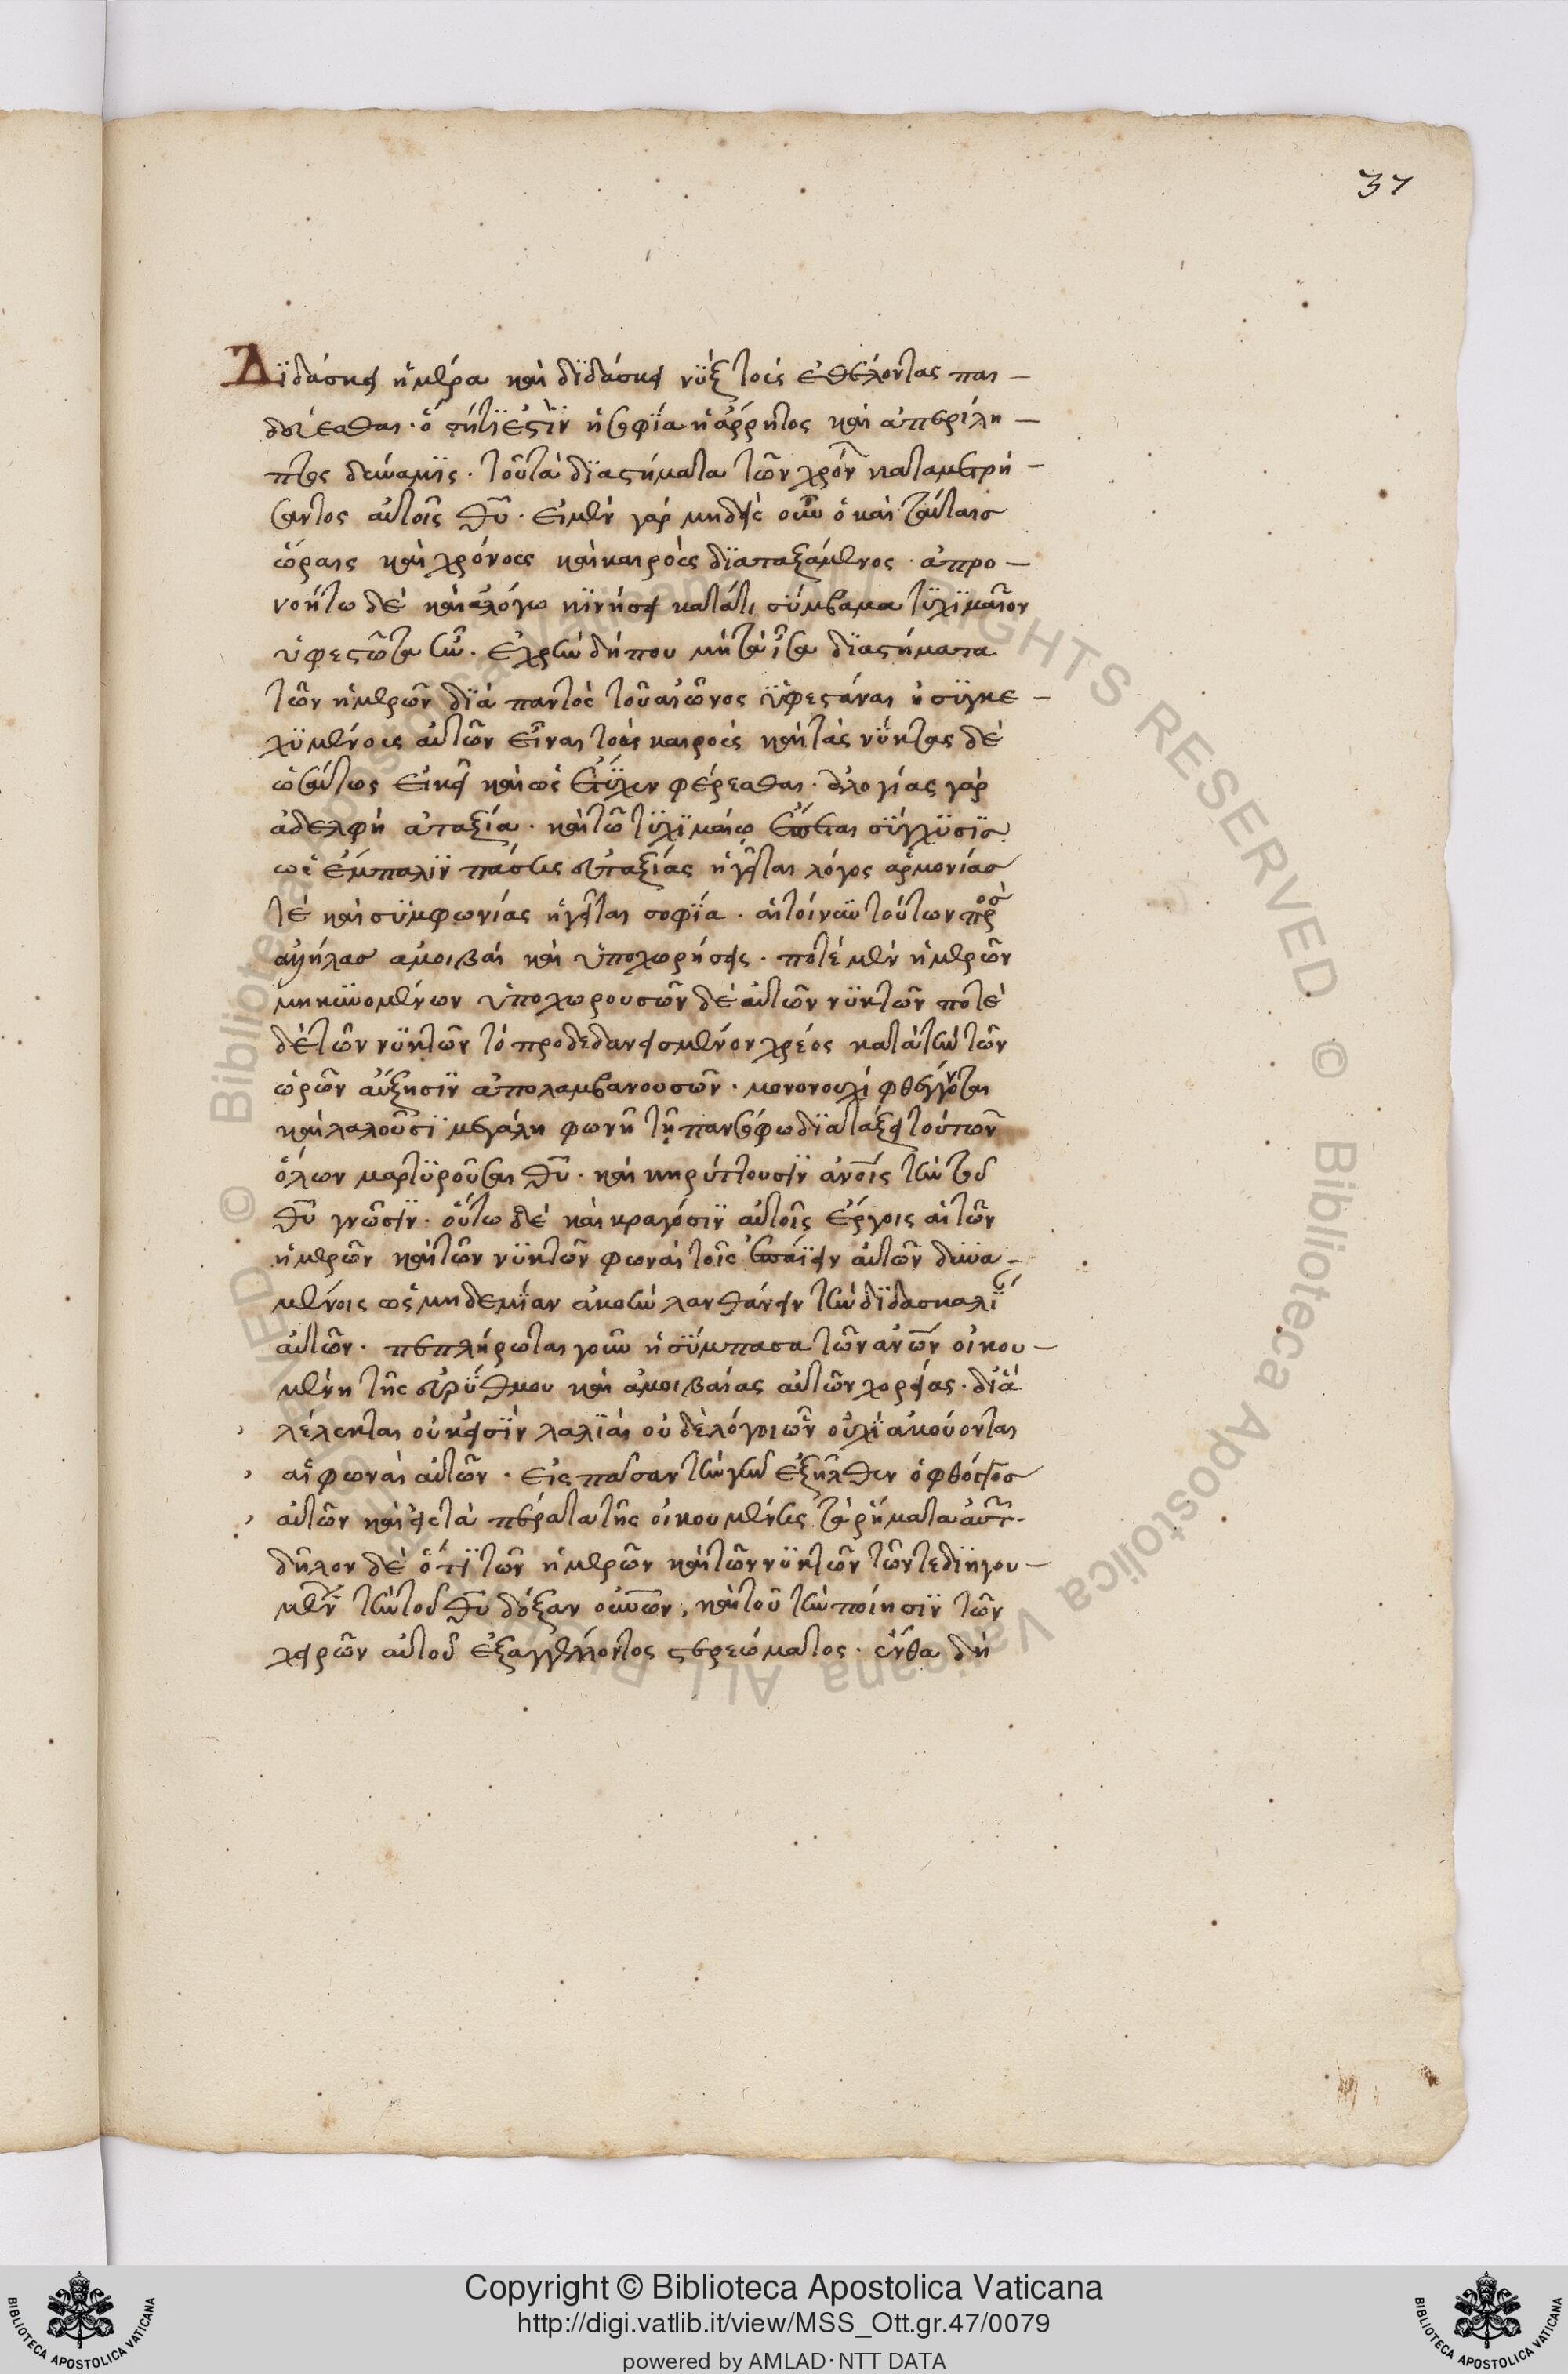 37
Διδάσκει ἡμέρα καὶ διδάσκει νὺξ τοὺς ἐθέλοντας παι-
δεύεσθαι. ὅ τί ἐστιν ἡ σοφία ἡ ἄρρητος καὶ ἀπερίλη-
πτος δύναμις. τοῦ τὰ διαστήματα τῶν χρόν καταμετρή
σαντος αὐτοῖς θῦ. εἰ μὲν γὰρ μηδεὶς οὖν ὁ καὶ ταύταις
ὥραις καὶ χρόνοις καὶ καιροὺς διαταξάμενος. ἀπρο-
νοήτω δὲ καὶ ἀλόγω κινήσει κατά τι σύμβαμα τυχϊμαῖον
ὑφεστῶτα ἦν. ἐχρῆν δήπου μὴ τὰ ἶσα διαστήματα
τῶν ἡμερῶν διὰ παντὸς τοῦ αἰῶνος ὑφεστάναι ἢ συγκε-
χυμένους αὐτῶν εἶναι τοὺς καιροὺς καὶ τὰς νύκτας δὲ
ὡσαύτως εἰκῆ καὶ ὡς ἔτυχεν φέρεσθαι. ἀλογίας γὰρ
ἀδελφὴ ἀταξία. καὶ τῶ τυχϊμαίω ἕπεται σύγχυσις
ὡς ἔμπαλιν πάσης εὐταξίας ἡγεῖται λόγος ἁρμονίας
τὲ καὶ συμφωνίας ἡγεῖται σοφία. αἱ τοίνυν τούτων πρὸς
ἀλλήλας ἀμοιβαὶ καὶ ὑποχωρήσεις. ποτὲ μὲν ἡμερῶν
μηκυνομένων ὑποχωρουσῶν δὲ αὐτῶν νυκτῶν ποτὲ
δὲ τῶν νυκτῶν τὸ προδεδανεισμένον χρέος κατὰ τὴν τῶν
ὡρῶν αὔξησιν ἀπολαμβανουσῶν. μονονουχὶ φθέγγονται
καὶ λαλοῦσι μεγάλη φωνῆ τῆ πανσόφω διατάξει τοῦ τῶν
ὅλων μαρτυροῦσαι θῦ. καὶ κηρύττουσιν ἀνοῖς τὴν τοῦ
θῦ γνῶσιν. οὕτω δὲ καὶ κραγόσιν αὐτοῖς ἔργοις αἱ τῶν
ἡμερῶν καὶ τῶν νυκτῶν φωναὶ τοῖς ἐπαΐειν αὐτῶν δυνα-
μένοις ὡς μηδεμίαν ἀκοὴν λανθάνειν τὴν διδασκαλί
αὐτῶν. πεπλήρωται γοῦν ἡ σύμπασα τῶν ἀνων οἰκου-
μένη τῆς εὐρύθμου καὶ ἀμοιβαίας αὐτῶν χορείας. διὰ
λέλεκται οὐκ εἰσὶν λαλιαὶ οὐδὲ λόγοι ὧν οὐχὶ ἀκούονται
αἱ φωναὶ αὐτῶν. εἰς πᾶσαν τὴν γῆν ἐξῆλθεν ὁ φθόγγος
αὐτῶν καὶ εἰς τὰ πέρατα τῆς οἰκουμένης τὰ ῥήματα αὐτ.
δῆλον δὲ ὅτι τῶν ἡμερῶν καὶ τῶν νυκτῶν τῶν τε διηγου-
μέν τὴν τοῦ θῦ δόξαν οὐνῶν, καὶ τοῦ τὴν ποίησιν τῶν
χειρῶν αὐτοῦ ἐξαγγέλλοντος στερεώματος. ἔνθα δὴ
Copyright © Biblioteca Apostolica Vaticana
http://digi.vatlib.it/view/MSS_Ott.gr.47/0079
powered by AMLAD·NTT DATA
BIBLIOTECA APOSTOLICA VATICANA
BIBLIOTECA APOSTOLICA VATICANA